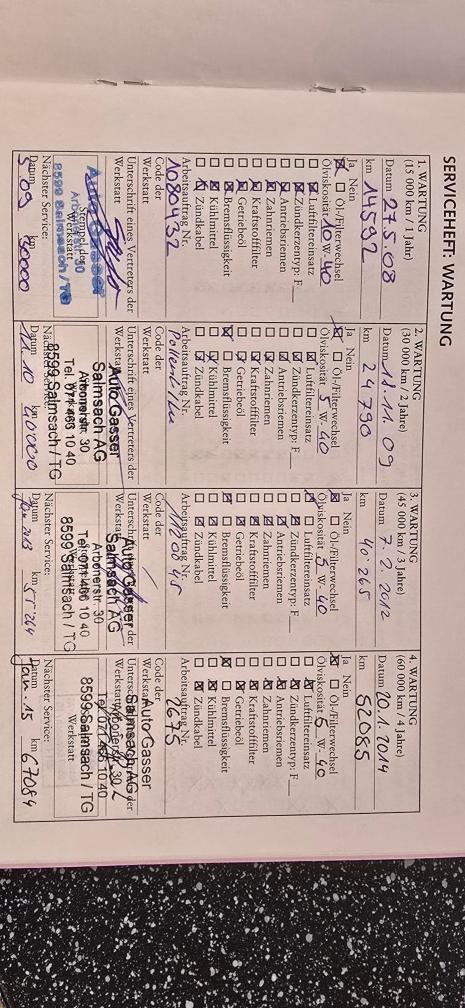 SERVICEHEFT: WARTUNG
1. WARTUNG
(15 000 km / 1 Jahr)
Datum 27.5.08
km 14592
Ja Nein
Öl-/Filterwechsel
Ölviskosität 10 W- 40
Luftfiltereinsatz
Zündkerzentyp: F
Antriebsriemen
Zahnriemen
Kraftstofffilter
Getriebeöl
Bremsflüssigkeit
Kühlmittel
Zündkabel
Arbeitsauftrag Nr.
1080432
Code der
Werkstatt
Unterschrift eines Vertreters der
Werkstatt
Auto Gasser
Stempel der
Werkstatt
8599 Salmsach / TG
Nächster Service:
Datum km
5.09 30000
2. WARTUNG
(30 000 km / 2 Jahre)
Datum 11.11.09
km 24790
Ja Nein
Öl-/Filterwechsel
Ölviskosität 5 W- 40
Luftfiltereinsatz
Zündkerzentyp: F
Antriebsriemen
Zahnriemen
Kraftstofffilter
Getriebeöl
Bremsflüssigkeit
Kühlmittel
Zündkabel
Arbeitsauftrag Nr.
Code der
Werkstatt
Unterschrift eines Vertreters der
Werkstatt
Auto Gasser
Salmsach AG
Arbonerstr. 30
Tel. 071 466 10 40
8599 Salmsach / TG
Nächster Service:
Datum km
11.10 40000
3. WARTUNG
(45 000 km / 3 Jahre)
Datum 7.2.2012
km 40'265
Ja Nein
Öl-/Filterwechsel
Ölviskosität 5 W- 40
Luftfiltereinsatz
Zündkerzentyp: F
Antriebsriemen
Zahnriemen
Kraftstofffilter
Getriebeöl
Bremsflüssigkeit
Kühlmittel
Zündkabel
Arbeitsauftrag Nr.
Code der
Werkstatt
Auto Gasser
Salmsach AG
Arbonerstr. 30
Tel. 071 466 10 40
8599 Salmsach / TG
Nächster Service:
Datum km
Jan 2013
4. WARTUNG
(60 000 km / 4 Jahre)
Datum 20.1.2014
km 52085
Ja Nein
Öl-/Filterwechsel
Ölviskosität 5 W- 40
Luftfiltereinsatz
Zündkerzentyp: F
Antriebsriemen
Zahnriemen
Kraftstofffilter
Getriebeöl
Bremsflüssigkeit
Kühlmittel
Zündkabel
Arbeitsauftrag Nr.
2675
Code der
Werkstatt
Auto Gasser
Salmsach AG
Arbonerstr. 30
Tel. 071 466 10 40
8599 Salmsach / TG
Werkstatt
Nächster Service:
Datum km
Jan. 15 67084